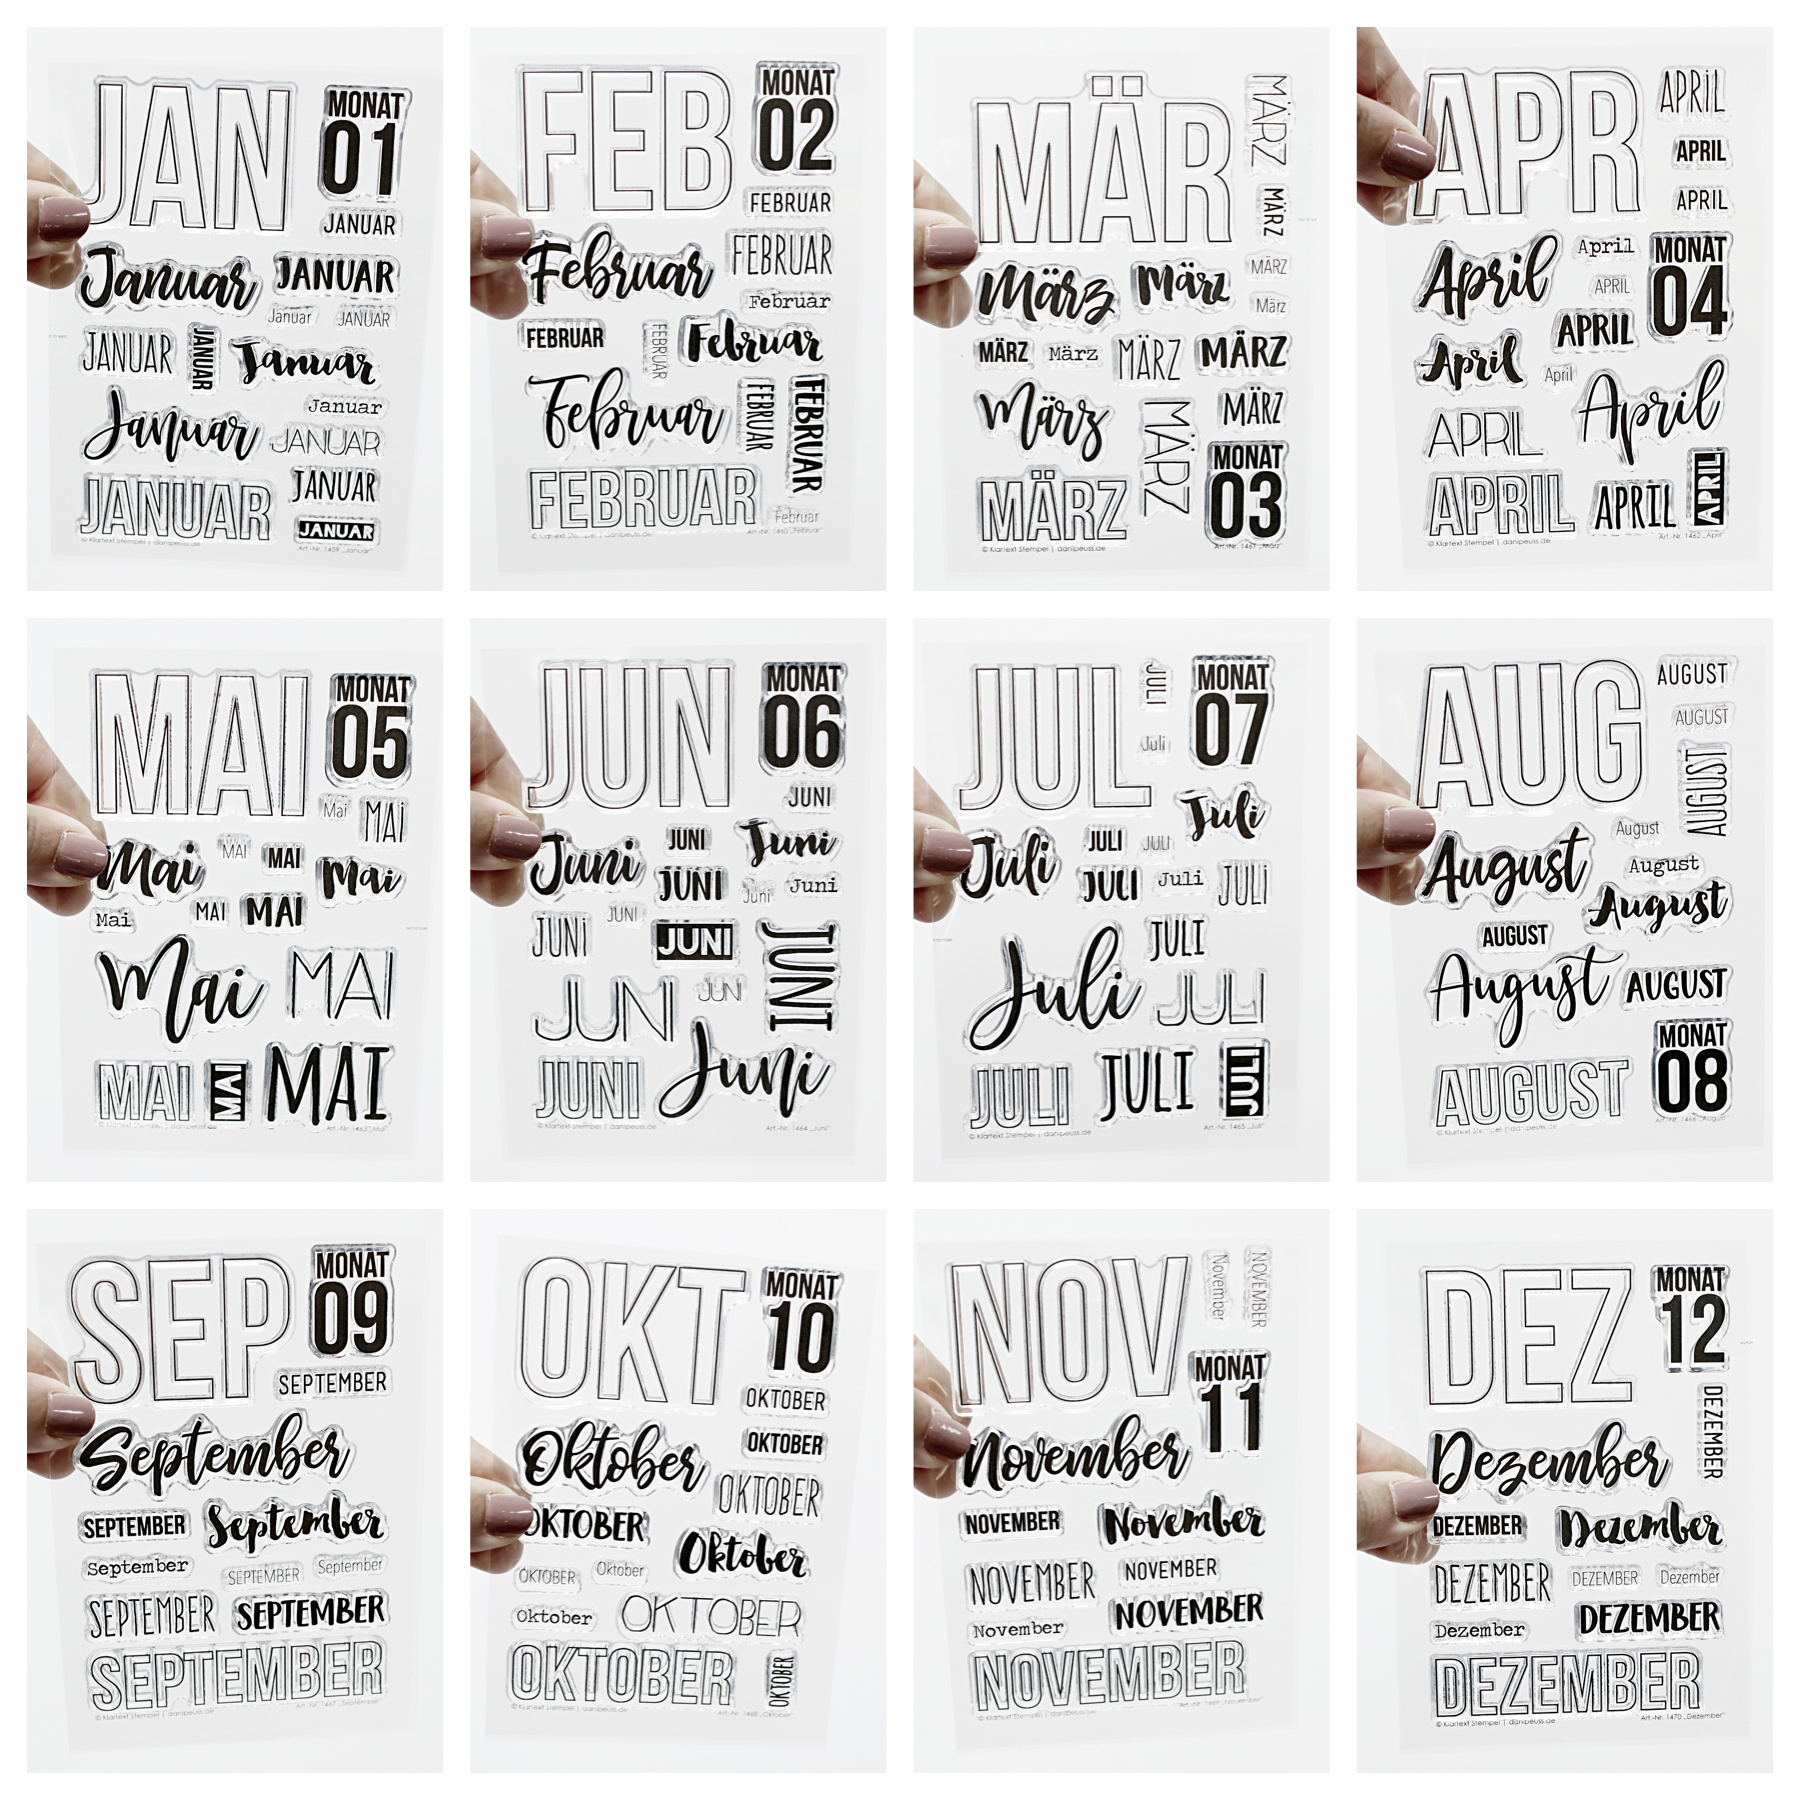 JAN
MONAT
01
JANUAR
Januar
JANUAR
Januar
JANUAR
JANUAR
JANUAR
Januar
Januar
Januar
JANUAR
JANUAR
JANUAR
JANUAR
© Klartext Stempel | danipeuss.de
Art.-Nr. 1459 „Januar"
FEB
MONAT
02
FEBRUAR
Februar
FEBRUAR
Februar
FEBRUAR
FEBRUAR
Februar
Februar
FEBRUAR
FEBRUAR
FEBRUAR
Februar
© Klartext Stempel | danipeuss.de
Art.-Nr. 1460 „Februar"
MÄR
MÄRZ
MÄRZ
MÄRZ
März
März
März
MÄRZ
März
MÄRZ
MÄRZ
März
MÄRZ
MÄRZ
MONAT
03
MÄRZ
© Klartext Stempel | danipeuss.de
Art.-Nr. 1461 „März"
APR
APRIL
APRIL
APRIL
April
April
APRIL
MONAT
04
APRIL
April
April
April
APRIL
APRIL
APRIL
APRIL
© Klartext Stempel | danipeuss.de
Art.-Nr. 1462 „April"
MAI
MONAT
05
Mai
MAI
Mai
MAI
MAI
Mai
Mai
MAI
MAI
Mai
MAI
MAI
MAI
MAI
© Klartext Stempel | danipeuss.de
Art.-Nr. 1463 „Mai"
JUN
MONAT
06
JUNI
Juni
JUNI
Juni
JUNI
Juni
Juni
JUNI
JUNI
JUNI
JUNI
JUNI
JUNI
JUNI
Juni
© Klartext Stempel | danipeuss.de
Art.-Nr. 1464 „Juni"
JUL
JULI
MONAT
07
Juli
Juli
Juli
JULI
JULI
JULI
Juli
JULI
JULI
Juli
JULI
JULI
JULI
JULI
© Klartext Stempel | danipeuss.de
Art.-Nr. 1465 „Juli"
AUG
AUGUST
AUGUST
AUGUST
August
August
August
August
AUGUST
August
AUGUST
MONAT
08
AUGUST
© Klartext Stempel | danipeuss.de
Art.-Nr. 1466 „August"
SEP
MONAT
09
SEPTEMBER
September
SEPTEMBER
September
September
SEPTEMBER
September
SEPTEMBER
SEPTEMBER
SEPTEMBER
© Klartext Stempel | danipeuss.de
Art.-Nr. 1467 „September"
OKT
MONAT
10
OKTOBER
Oktober
OKTOBER
OKTOBER
OKTOBER
Oktober
OKTOBER
Oktober
Oktober
OKTOBER
OKTOBER
OKTOBER
© Klartext Stempel | danipeuss.de
Art.-Nr. 1468 „Oktober"
NOV
November
NOVEMBER
MONAT
11
November
NOVEMBER
November
NOVEMBER
NOVEMBER
November
NOVEMBER
NOVEMBER
© Klartext Stempel | danipeuss.de
Art.-Nr. 1469 „November"
DEZ
MONAT
12
DEZEMBER
Dezember
DEZEMBER
Dezember
DEZEMBER
DEZEMBER
Dezember
Dezember
DEZEMBER
DEZEMBER
© Klartext Stempel | danipeuss.de
Art.-Nr. 1470 „Dezember"